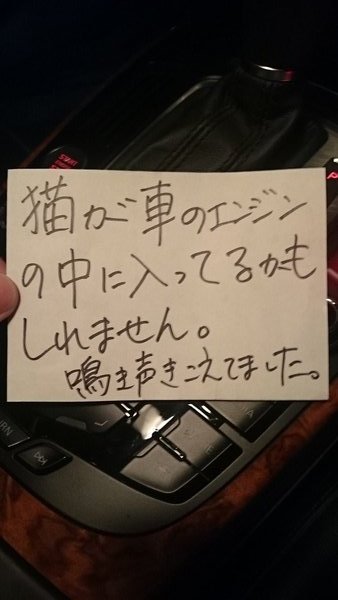 猫が車のエンジン
の中に入ってるかも
しれません。
鳴き声きこえてました。
START